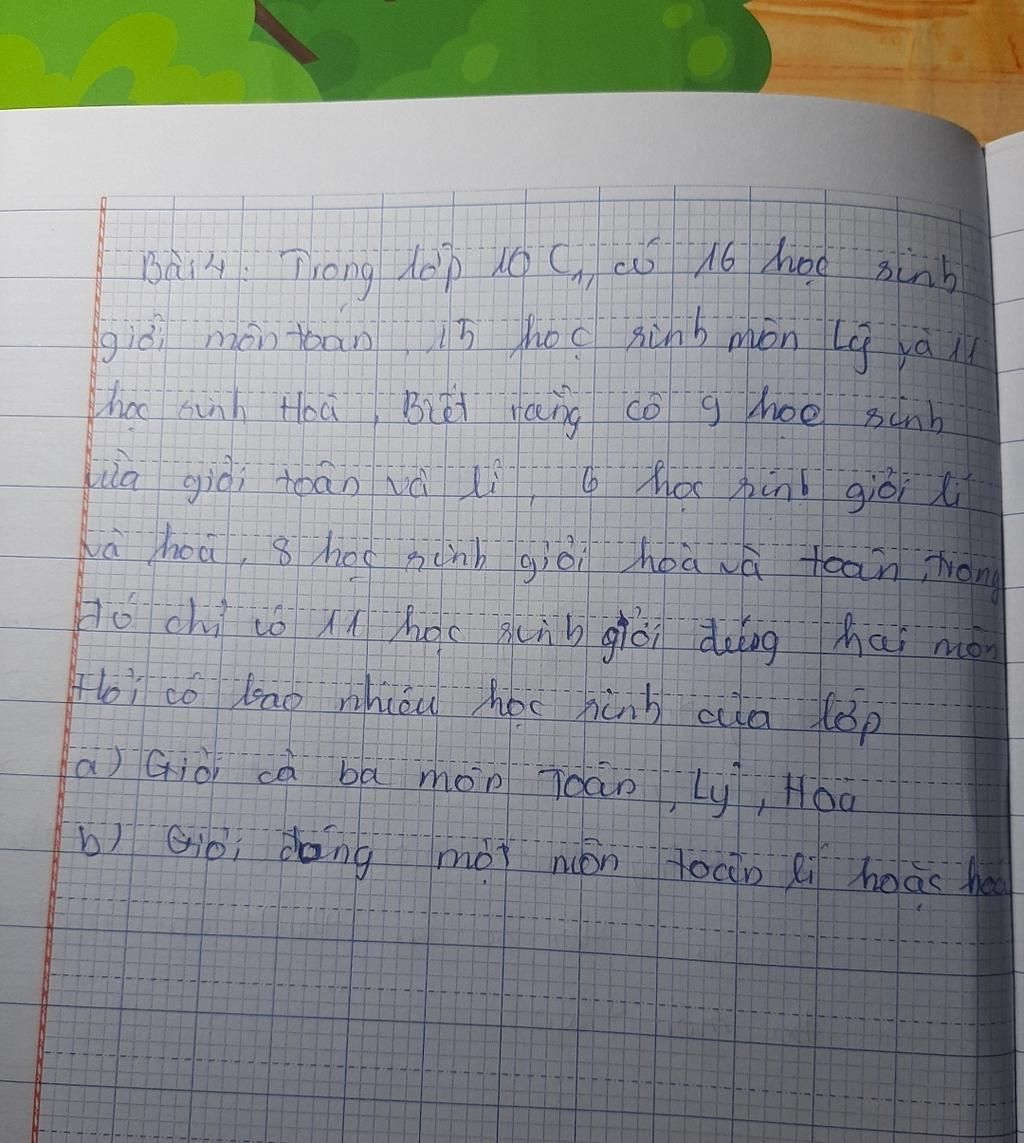 Bài 4: Trong lớp 10 C1, có 16 học sinh
giỏi môn toán, 15 học sinh môn Lý và 11
học sinh Hoá, Biết rằng có 9 học sinh
vừa giỏi toán và lí, 6 học sinh giỏi lí
và hoá, 8 học sinh giỏi hoá và toán, trong
đó chỉ có 11 học sinh giỏi đúng hai môn
Hỏi có bao nhiêu học sinh của lớp
a) Giỏi cả ba môn Toán, Lý, Hoá
b) Giỏi đúng một môn toán lí hoặc hoá